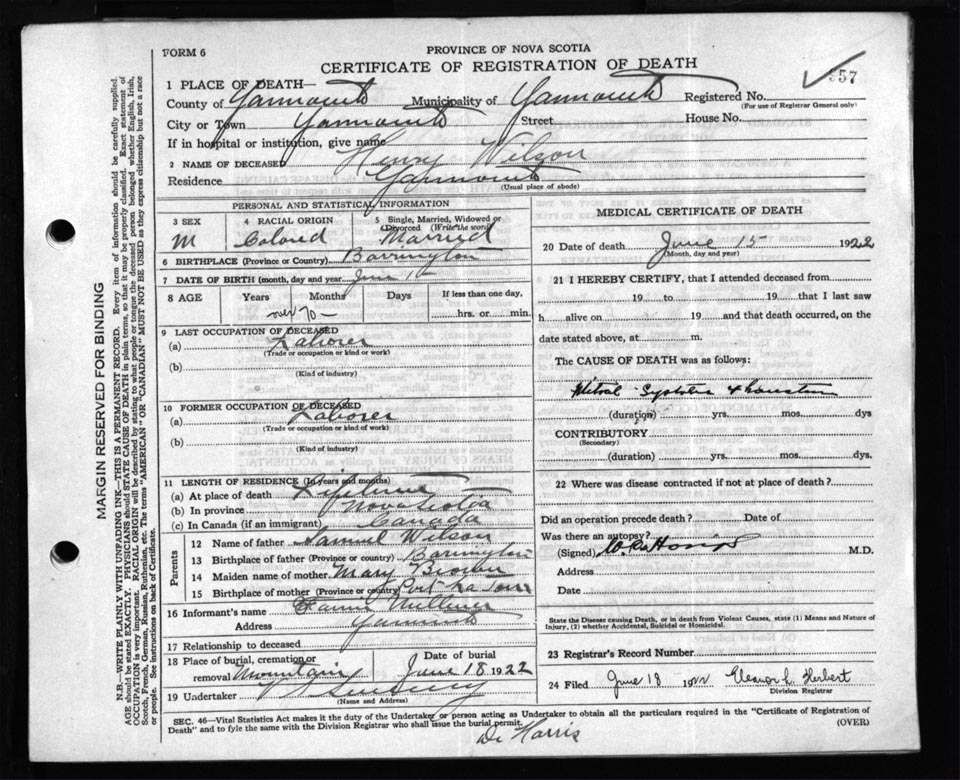 FORM 6
PROVINCE OF NOVA SCOTIA
CERTIFICATE OF REGISTRATION OF DEATH
1 PLACE OF DEATH—
County of Yarmouth Municipality of Yarmouth Registered No. 557
(For use of Registrar General only)
City or Town Yarmouth Street House No.
If in hospital or institution, give name
2 NAME OF DECEASED Henry Wilson
Residence Yarmouth
(Usual place of abode)
PERSONAL AND STATISTICAL INFORMATION
3 SEX 4 RACIAL ORIGIN 5 Single, Married, Widowed or Divorced (Write the word)
M Colored Married
6 BIRTHPLACE (Province or Country) Barrington
7 DATE OF BIRTH (month, day and year) June
8 AGE Years Months Days If less than one day,
over 70 — hrs. or min.
9 LAST OCCUPATION OF DECEASED
(a) Laborer
(Trade or occupation or kind or work)
(b)
(Kind of industry)
10 FORMER OCCUPATION OF DECEASED
(a) Laborer
(Trade or occupation or kind or work)
(b)
(Kind of industry)
11 LENGTH OF RESIDENCE (In years and months)
(a) At place of death Lifetime
(b) In province Nova Scotia
(c) In Canada (if an immigrant) Canada
Parents
12 Name of father Samuel Wilson
13 Birthplace of father (Province or country) Barrington
14 Maiden name of mother Mary Brown
15 Birthplace of mother (Province or country) Port La Tour
16 Informant's name Fannie
Address Yarmouth
17 Relationship to deceased
18 Place of burial, cremation or removal Mountain Date of burial June 18 1922
19 Undertaker
(Name and Address)
MEDICAL CERTIFICATE OF DEATH
20 Date of death June 15 1922
(Month, day and year)
21 I HEREBY CERTIFY, that I attended deceased from
19 to 19 that I last saw
h alive on 19 and that death occurred, on the
date stated above, at m.
The CAUSE OF DEATH was as follows:
Mitral Systolic
(duration) yrs. mos. dys
CONTRIBUTORY
(Secondary)
(duration) yrs. mos. dys.
22 Where was disease contracted if not at place of death?
Did an operation precede death? Date of
Was there an autopsy?
(Signed) M.D.
Address
Date
State the Disease causing Death, or in death from Violent Causes, state (1) Means and Nature of Injury, (2) whether Accidental, Suicidal or Homicidal.
23 Registrar's Record Number
24 Filed June 18 1922 Eleanor L. Herbert
Division Registrar
SEC. 46—Vital Statistics Act makes it the duty of the Undertaker or person acting as Undertaker to obtain all the particulars required in the "Certificate of Registration of
Death" and to fyle the same with the Division Registrar who shall issue the burial permit. (OVER)
Dr Harris
MARGIN RESERVED FOR BINDING
N.B.—WRITE PLAINLY WITH UNFADING INK—THIS IS A PERMANENT RECORD. Every item of information should be carefully supplied.
AGE should be stated EXACTLY. PHYSICIANS should STATE CAUSE OF DEATH in plain terms, so that it may be properly classified. Exact statement of
OCCUPATION is very important. RACIAL ORIGIN will be described by stating to what people or tongue the deceased person belonged whether English, Irish,
Scotch, French, German, Russian, Ruthenian, etc. The terms "AMERICAN" OR "CANADIAN" MUST NOT BE USED as they express citizenship but not a race
or people. See instructions on back of Certificate.